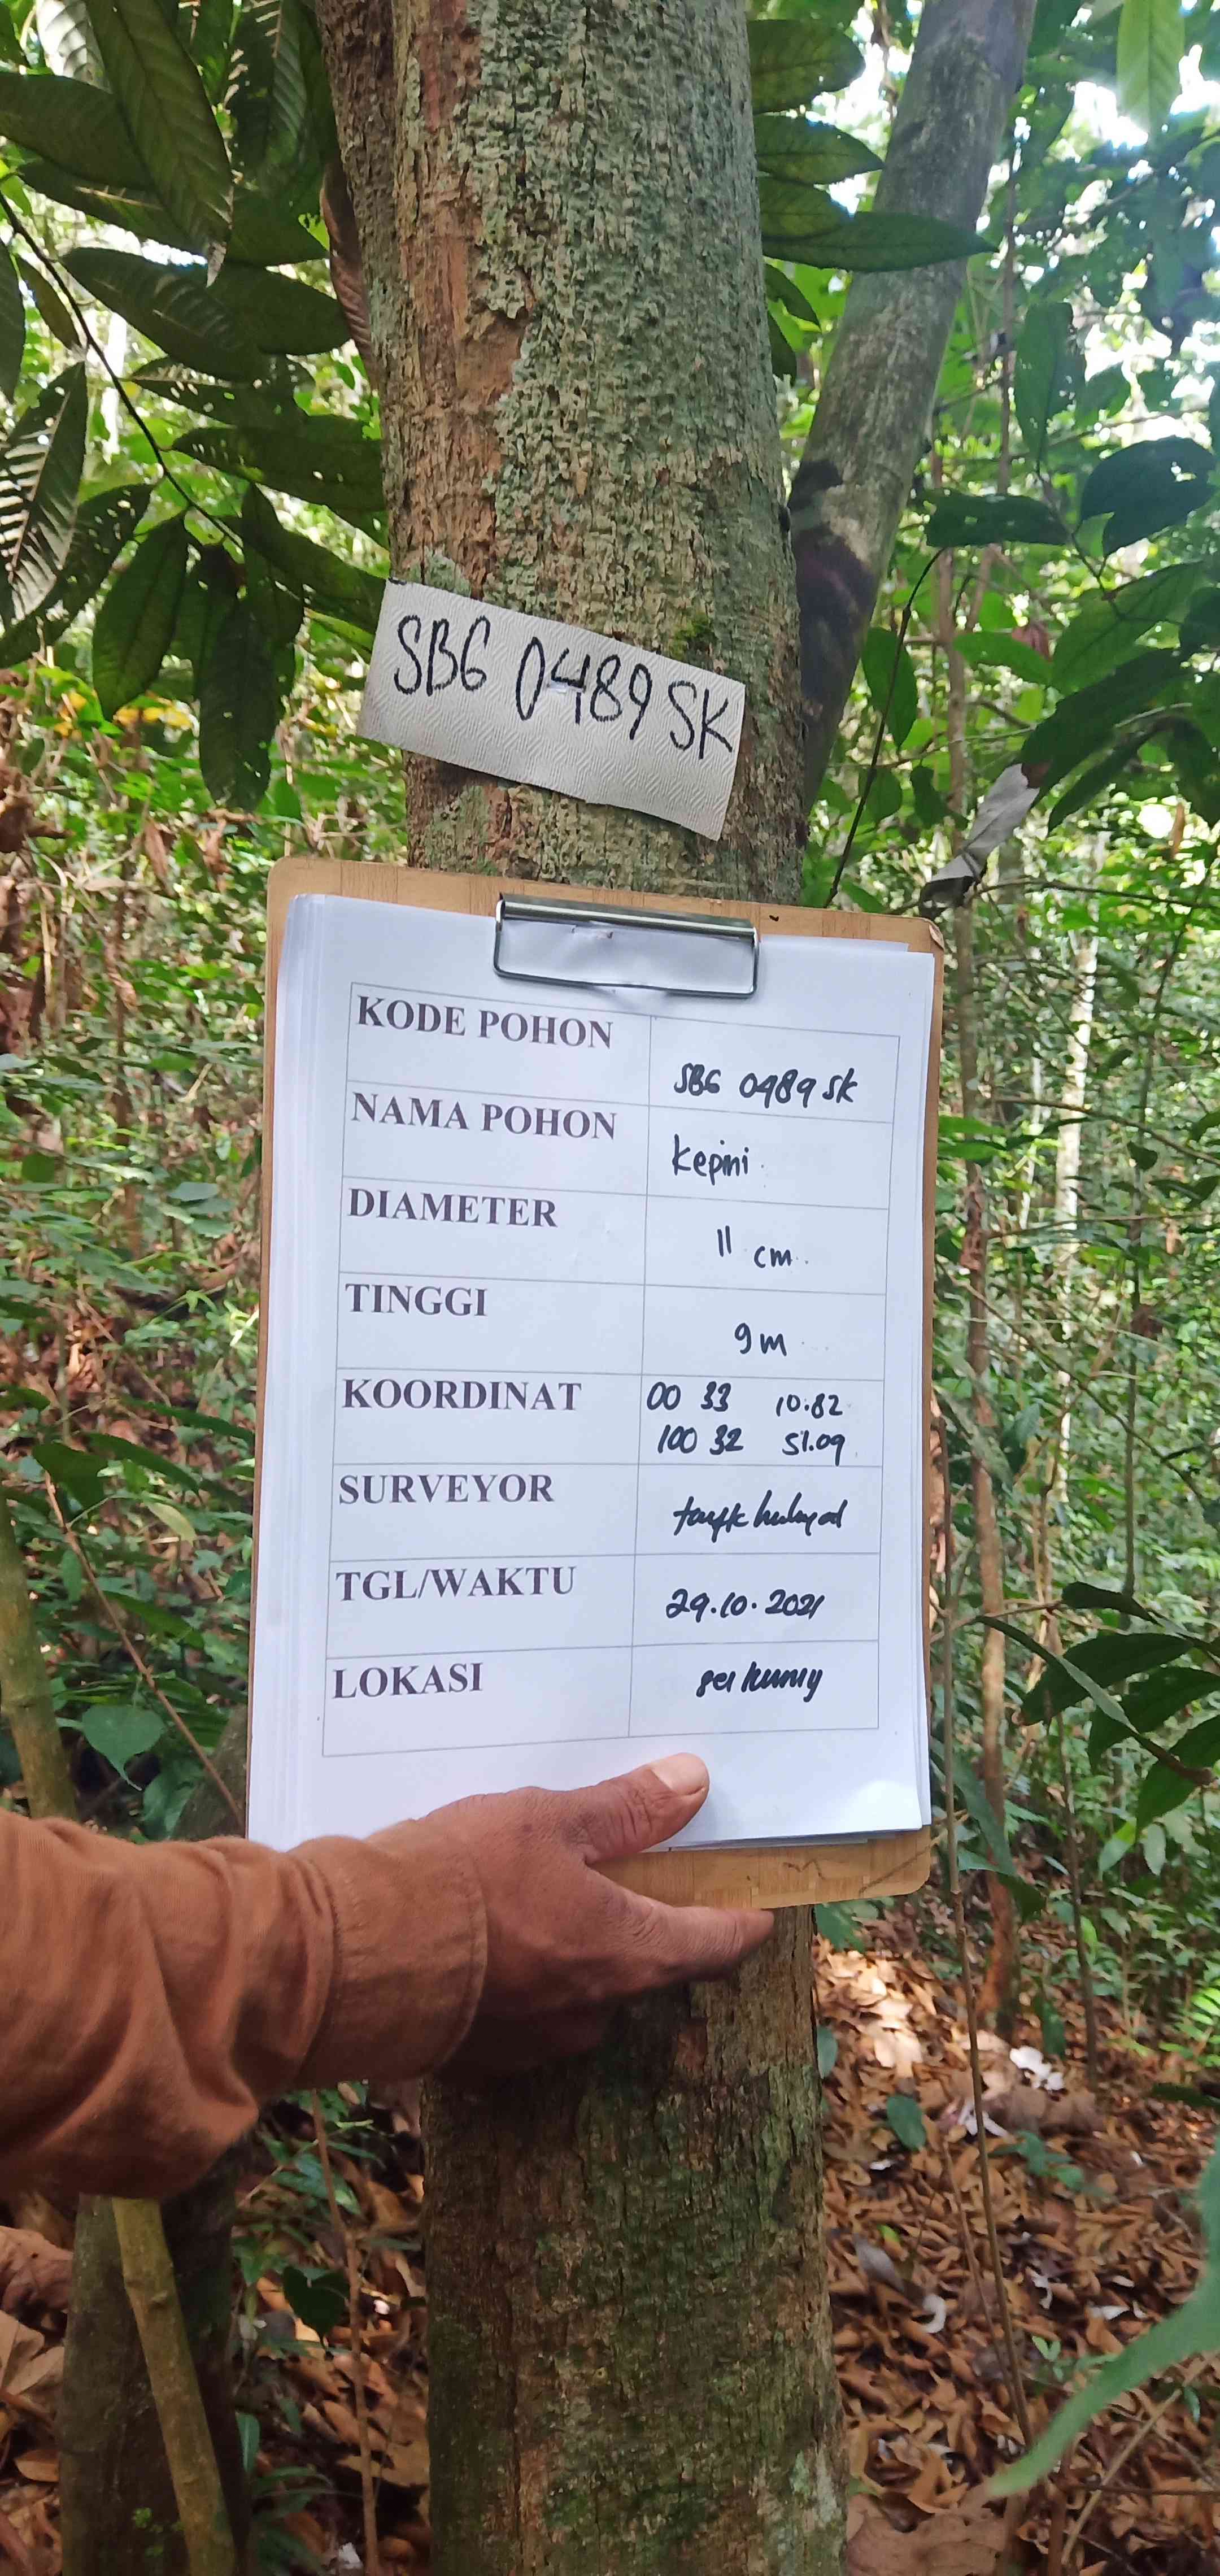 SBG 0489 SK
KODE POHON
SBG 0489 SK
NAMA POHON
Kepini
DIAMETER
11 cm
TINGGI
9 m
KOORDINAT
00 33 10.82
100 32 51.09
SURVEYOR
TGL/WAKTU
29.10.2021
LOKASI